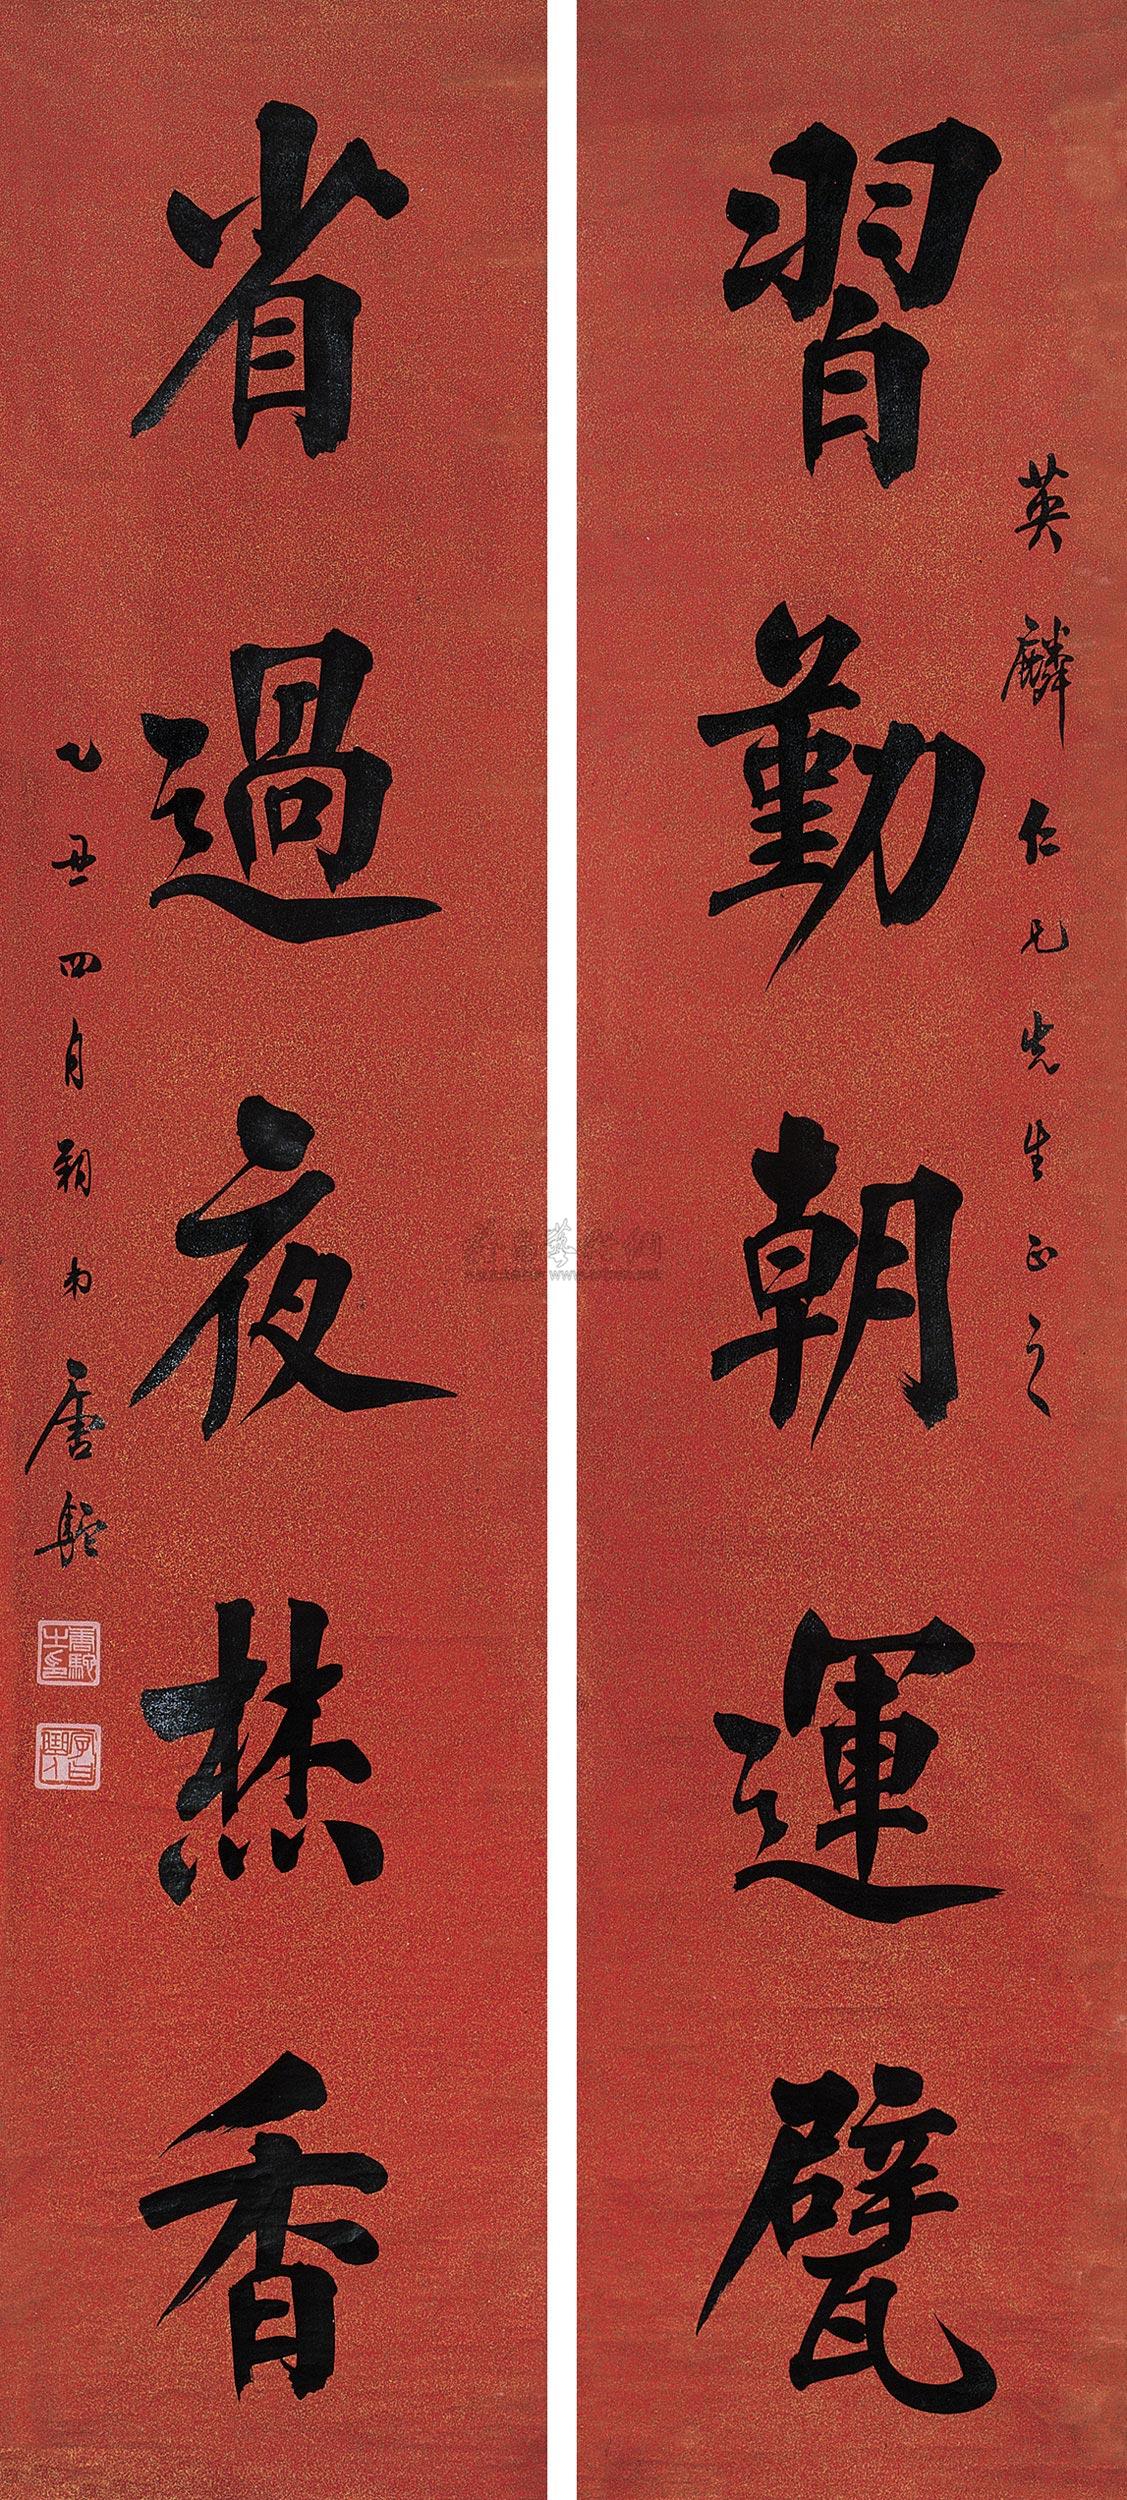 英麟仁兄先生正之
習勤朝運甓
省過夜焚香
乙丑四月朔方唐駝
唐駝之印